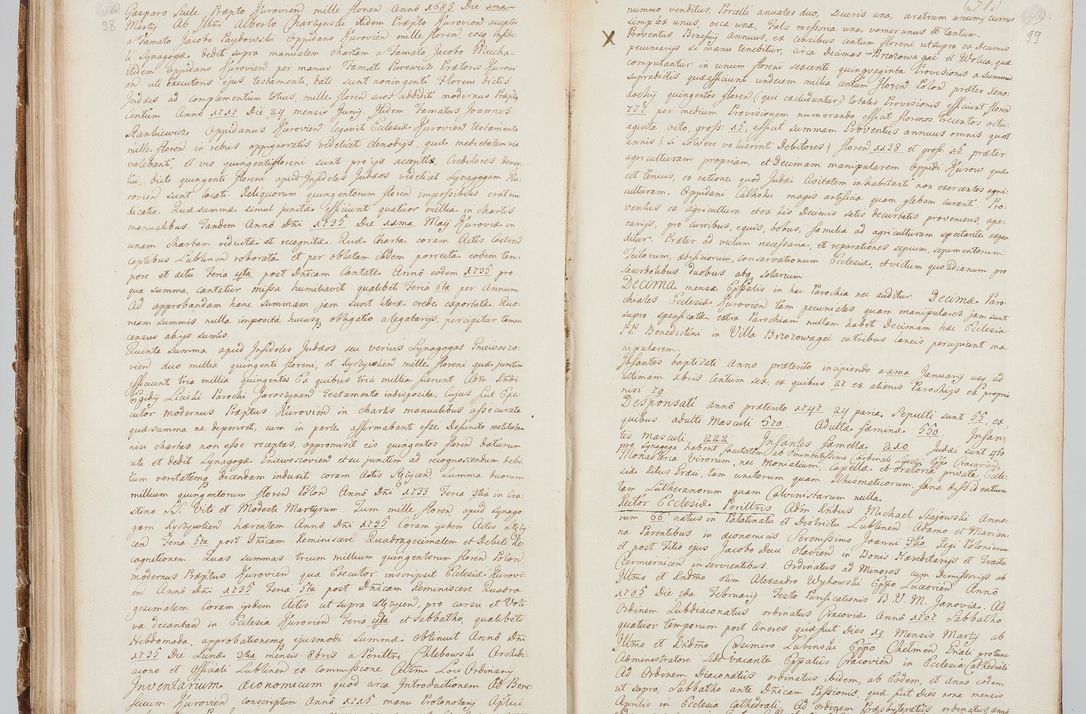 98
Gasparo Szule Præpto Kurovien mille floren Anno 1685 Die
Marty Ab Illri Alberto Charzynski itidem Præpto Kurovien auctis
a Famato Jacobo Paydowski Oppidano Kurovien mille floren, eosq infi
Synagoga dedit supra manualem chartam a Famato Jacobo Mucha
itidem Oppidano Kurovien per manus Famati Prætoris Kurov
en uti Executoris ejus testamenti, dati sunt noningenti floreni dictis
Judæis ad complementum totius, mille floren suos addidit modernus Præptus
centum Anno 1727 Die 24 mensis Junij. Itidem Famatus Joannes
Stankiewicz Oppidanus Kurovien legavit Ecclesiæ Kurovien testamento
mille floren in rebus oppignoratis videlicet donobys, quæ medietatem via
valebant, et vix quingenti floreni sunt pro ijs accepti, Creditores
dicti quingenti floreni apud Infideles Judæos videlicet Synagogam Ku
rovien sunt locati Reliquorum quingentorum floren impossibilis erat
dicatio. Quæ summæ simul junctæ efficiunt quatuor millia in chartis
manualibus. Tandem Anno Dni 1735 Die 21ma Maij Kuroviæ in
unam chartam reducta et recognita. Quæ Charta coram Actis Castren
Captibus Lublinen roborata et per oblatam ibidem porrecta eodem tem
pore et actu Feria 4ta post Dnicam Cantate Anno eodem 1735 pro
qua summa, cantatur missa hunibavit qualibet Feria 6ta per Annum
Ad approbandam hanc summam jam sunt literæ ordé exportata. Quo
niam summis nulla imposita hucusq obligatio a legatarijs, percipitur tamen
census ab ijs sumis.
Quinta Summa apud Infideles Judæos seu verius Synagogas Eniewoszo
vien duo millia quingenti floreni, et Kyczywolen mille floreni quæ junctim
efficiunt tria millia quingentos Ex quibus tria millia fuerunt Adm Rndi
Egidy Liwski Parochi Jarostynen Testamento indisposita, cujus fuit Exe
cutor modernus Præptus Kurovien in chartis manualibus assecurata
quæ summa ne deperiret, cum in parte affirmabant esse
nisi chartas non esse receptas, appromisit eis quingentos floren daturum
uti et dedit Synagogæ Eniewoszovien et seu junctim ad recognoscendum debi
tum veritatemq dicendam induxit coram Actis Stężycen Summa duorum
millium quingentorum floren Polon Anno Dni 1733 Feria 3tia in Cra
stino S.S. Viti et Modesti Martyrum Tum mille floren apud Synago
gam Kyczywolien hærentem Anno Dni 1735 Coram ijsdem Actis Stęży
cen Feria 5ta post Dnicam Reminiscere Quadragesimalem et Debiti Re
cognitionem Quas summas trium millium quingentorum floren Polon
modernus Præptus Kurovien qua Executor inscripsit Ecclesiæ Kurovi
en Anno Dni 1735 Feria 5ta post Dnicam Reminiscere Quadra
gesimalem coram ijsdem Actis ut supra Stężycen, pro cursu et Voti
va decantan in Ecclesia Kurovien Feria 4ta et Sabbatho qualibet
Hebdomada, approbationemq ejusmodi Summa obtinuit Anno Dni
1735 Die Lunæ 3tia mensis 8bris a Perillri Chlebowski Archidi
acono et Officiali Lublinen ex commissione Celsmi Loci Ordinarij
Inventarium æconomicum quod circa Introductionem Ad Bene
ficium Kurovien conscriptum Anno 1725 manu Protonotarij Aptici
99
nummo venditus, Porcelli annuales duo, securis una, aratrum unum, currus
simplex unus, occa una, Falx messoria una, vomer unus et tantum.
X
Proventus Beneficij Annuus, ex censibus centum floreni ut supra ex Decimis
pecuniarijs si manu tenebitur, circa Decimas Brzozowagaé et Wolicæ, quæ
computantur in unum floreni sexcenti quinquaginta Provisionis a summis
supradictis quæ efficiunt undecim millia centum floren Polon præter Xeno
dochij quingentos floren (qui excluduntur) totales Provisiones efficiunt floren
777 per medium Provisionem numerando efficit florenos trecentos octu
aginta octo, gross 15, efficit summam Proventus annuus omnis quot
annis (si solvere voluerint Debitores) floren 1138 et gross 15 præter
agriculturam propriam, et Decimam manipularem Oppidi Kurow quæ
est tenuis, ex ratione quod Judæi Civitatem inhabitant non exercentes agri
culturam. Oppidani Catholici magis artificia quam glebam curant Pro
ventus ex Agricultura et ex his Decimis satis decurtatis proveniens, ope
rarijs, pro curribus, equis, bobus, familia ad agriculturam spectante expen
ditur. Præter ad victum necessaria, et reparationes sepium, sepimentorum
Tectorum, ædificiorum, conservationum Ecclesiæ, et victum quotidianum pro
Sacerdotibus duobus absq solarium
Decima mensæ Eppalis in hac Parochia nec auditur. Decimæ Paro
chiales Ecclesiæ Kurovien tam pecuniales quam manipulares jam sunt
supra specificatæ, extra Parochiam nullam habet Decimam hæc Ecclesia
P.P. Benedictini in Villa Brzozowagai ex tribus laneis percipiunt ma
nipularem.
Infantes baptizati Anno præterito incipiendo a 1ma January usq ad
ultimam Xbris Centum sex ex quibus 27 ex alienis Parochijs ex propria
nisi 79
Desponsati anno præterito 1747 24 paria. Sepulti sunt 55, ex
quibus adulti Masculi 570. Adulta fœmina 550. Infan
tes masculi 222 Infantes Fœmellæ 210 Judæi sunt 450
pro Synagoga habent facultatem ab Eminentissimo Cardinali Lipski Eppo Cracovien
Monasteria Virorum, nec Monialium, Capellæ et Oratoria privata Eccle
siæ Ritus Græci, tam unitorum quam Schismaticorum, fana dissidentium
tam Lutheranorum quam Calvinistarum nulla.
Rector Ecclesiæ Perilltris Adm Rndus Michael Kiejowski Anno
rum 66 natus in Palatinatu et Districtu Lublinen Adamo et Marian
na Parentibus in œconomicis Serenissimo Joanni 3tio Regi Poloniarum
et post Filio ejus Jacobo Duci Olavien in Bonis Hæreditarijs et Tractu
Czemiernicen inservientibus Ordinatus ad Minores cum Demissorijs ab
Illmo et Rndmo olim Alexandro Wyhowski Eppo Luceorien Anno
1705 Die 2da February Festo Purificationis B.V.M. Janoviæ. Ad
Ordinem Subdiaconatus ordinatus Cracoviæ Anno 1707 Sabbatho
quatuor temporum post Cineres quæ fuit Dies 19 Mensis Martij ab
Illmo et Rndmo Casimiro Lubinski Eppo Chelmen Qnali pro tunc
Administratore Sede vacante Eppatus Cracovien in Ecclesia Cathedrali
Ad Ordinem Diaconatus ordinatus ibidem, ab Eodem, et Anno eodem
ut supra, Sabbatho ante Dnicam Passionis, quæ fuit Dies nona mensis
Aprilis in Ecclesia Cathedrali, Ad Ordinem Præsbyteratus ordinatus anno